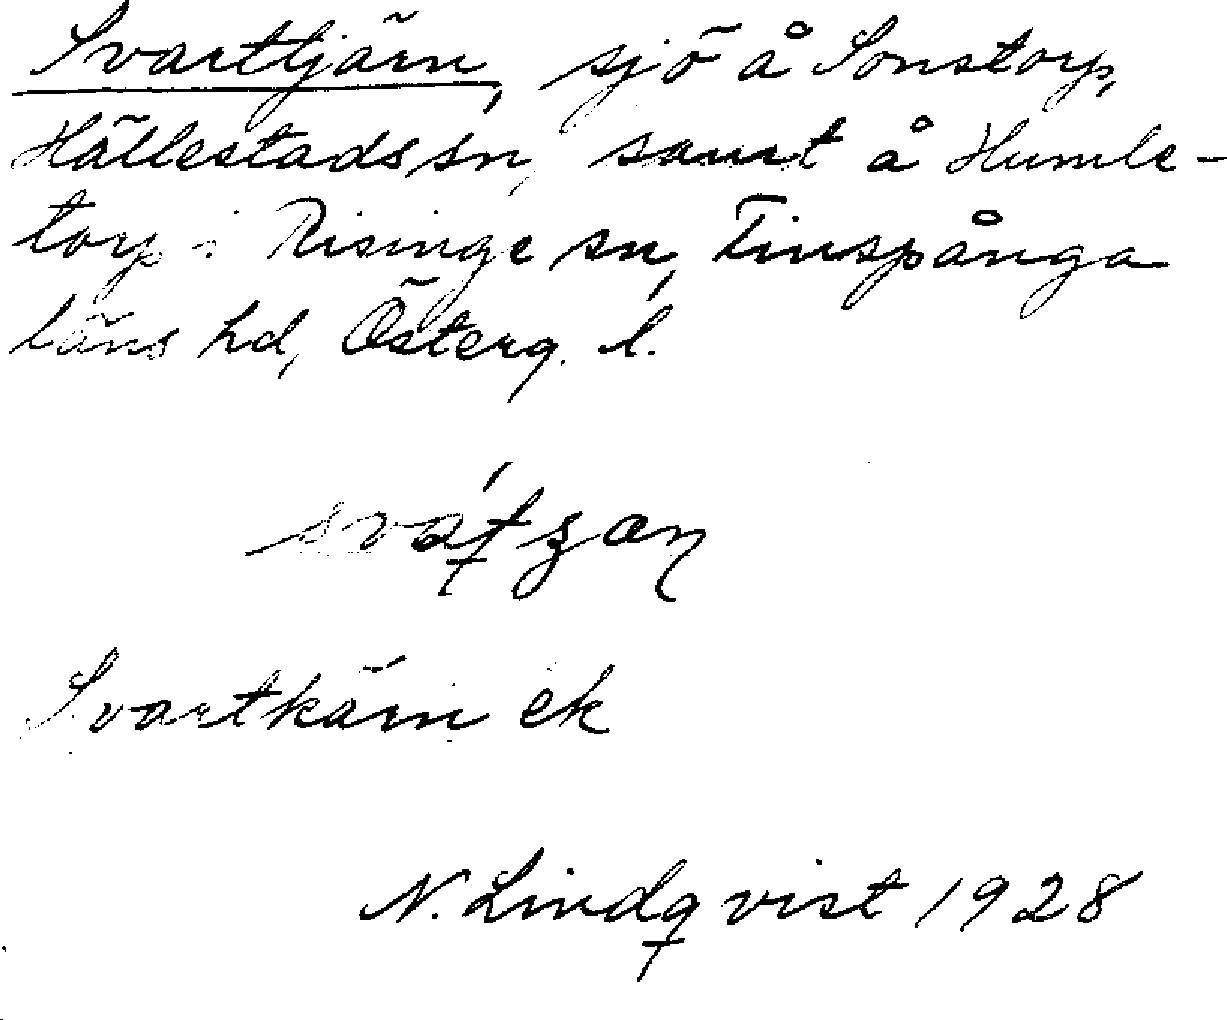 Svarttjärn, sjö å Sonstorp,
Hällestads sn, samt å Humle-
torp i Risinge sn, Finspånga
läns hd, Österg. l.
Svartkärn ek
N. Lindqvist 1928